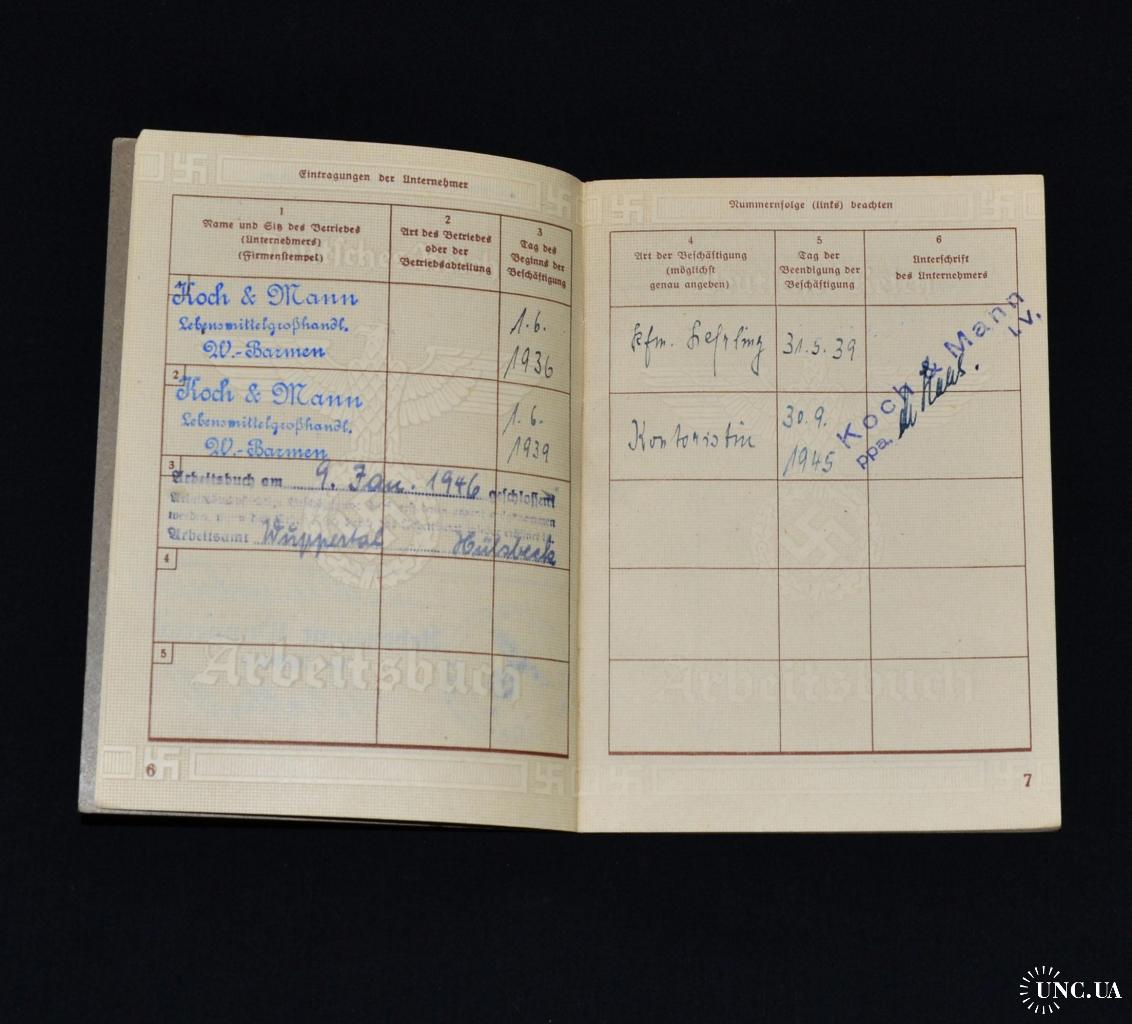 Eintragungen der Unternehmer
1
Name und Sitz des Betriebes
(Unternehmers)
(Firmenstempel)
2
Art des Betriebes
oder der
Betriebsabteilung
3
Tag des
Beginns der
Beschäftigung
Koch & Mann
Lebensmittelgroßhandl.
W.-Barmen
1.6.
1936
2
Koch & Mann
Lebensmittelgroßhandl.
W.-Barmen
1.6.
1939
3
Arbeitsbuch am 9. Jan. 1946 geschlossen
Arbeitsamt Wuppertal Hülsbeck
4
5
Arbeitsbuch
6
Nummernfolge (links) beachten
4
Art der Beschäftigung
(möglichst
genau angeben)
5
Tag der
Beendigung der
Beschäftigung
6
Unterschrift
des Unternehmers
kfm. Lehrling
31.5.39
Kontoristin
30.9.
1945
Koch & Mann
ppa.
i.V.
Arbeitsbuch
7
UNC.UA